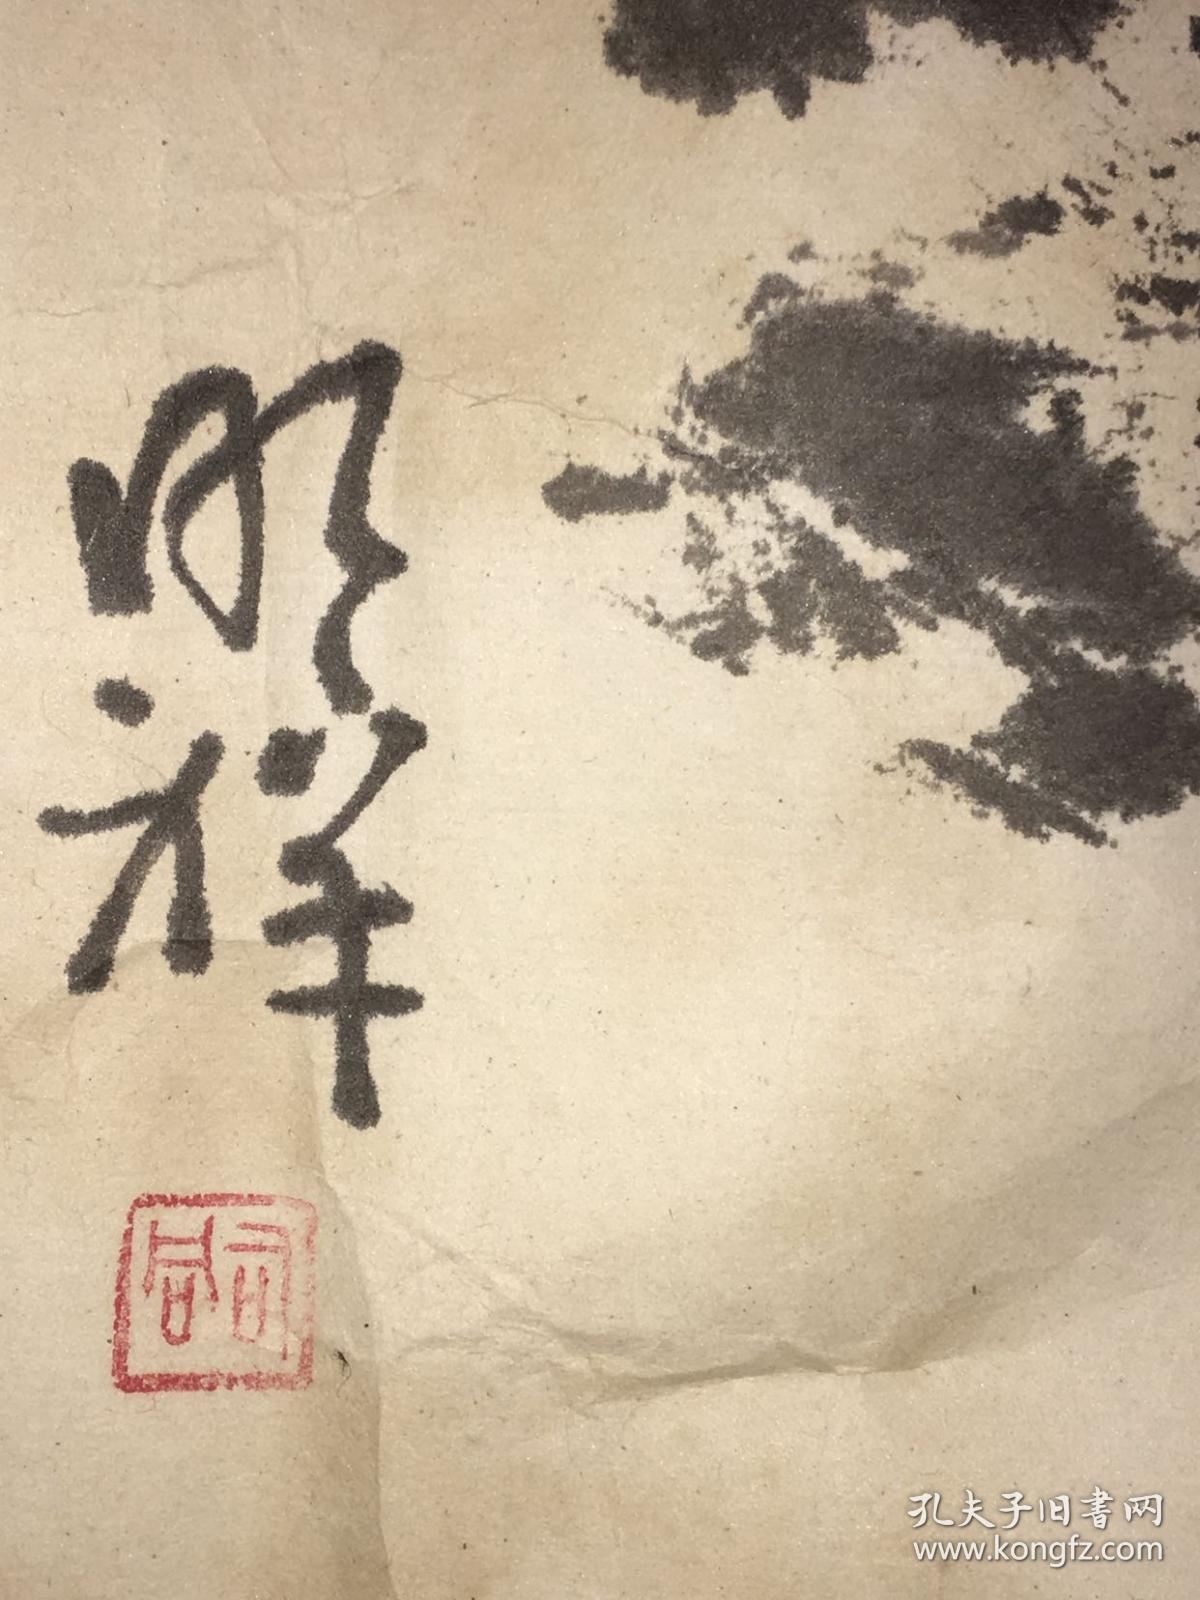 明祥
司谷
孔夫子旧書网
www.kongfz.com